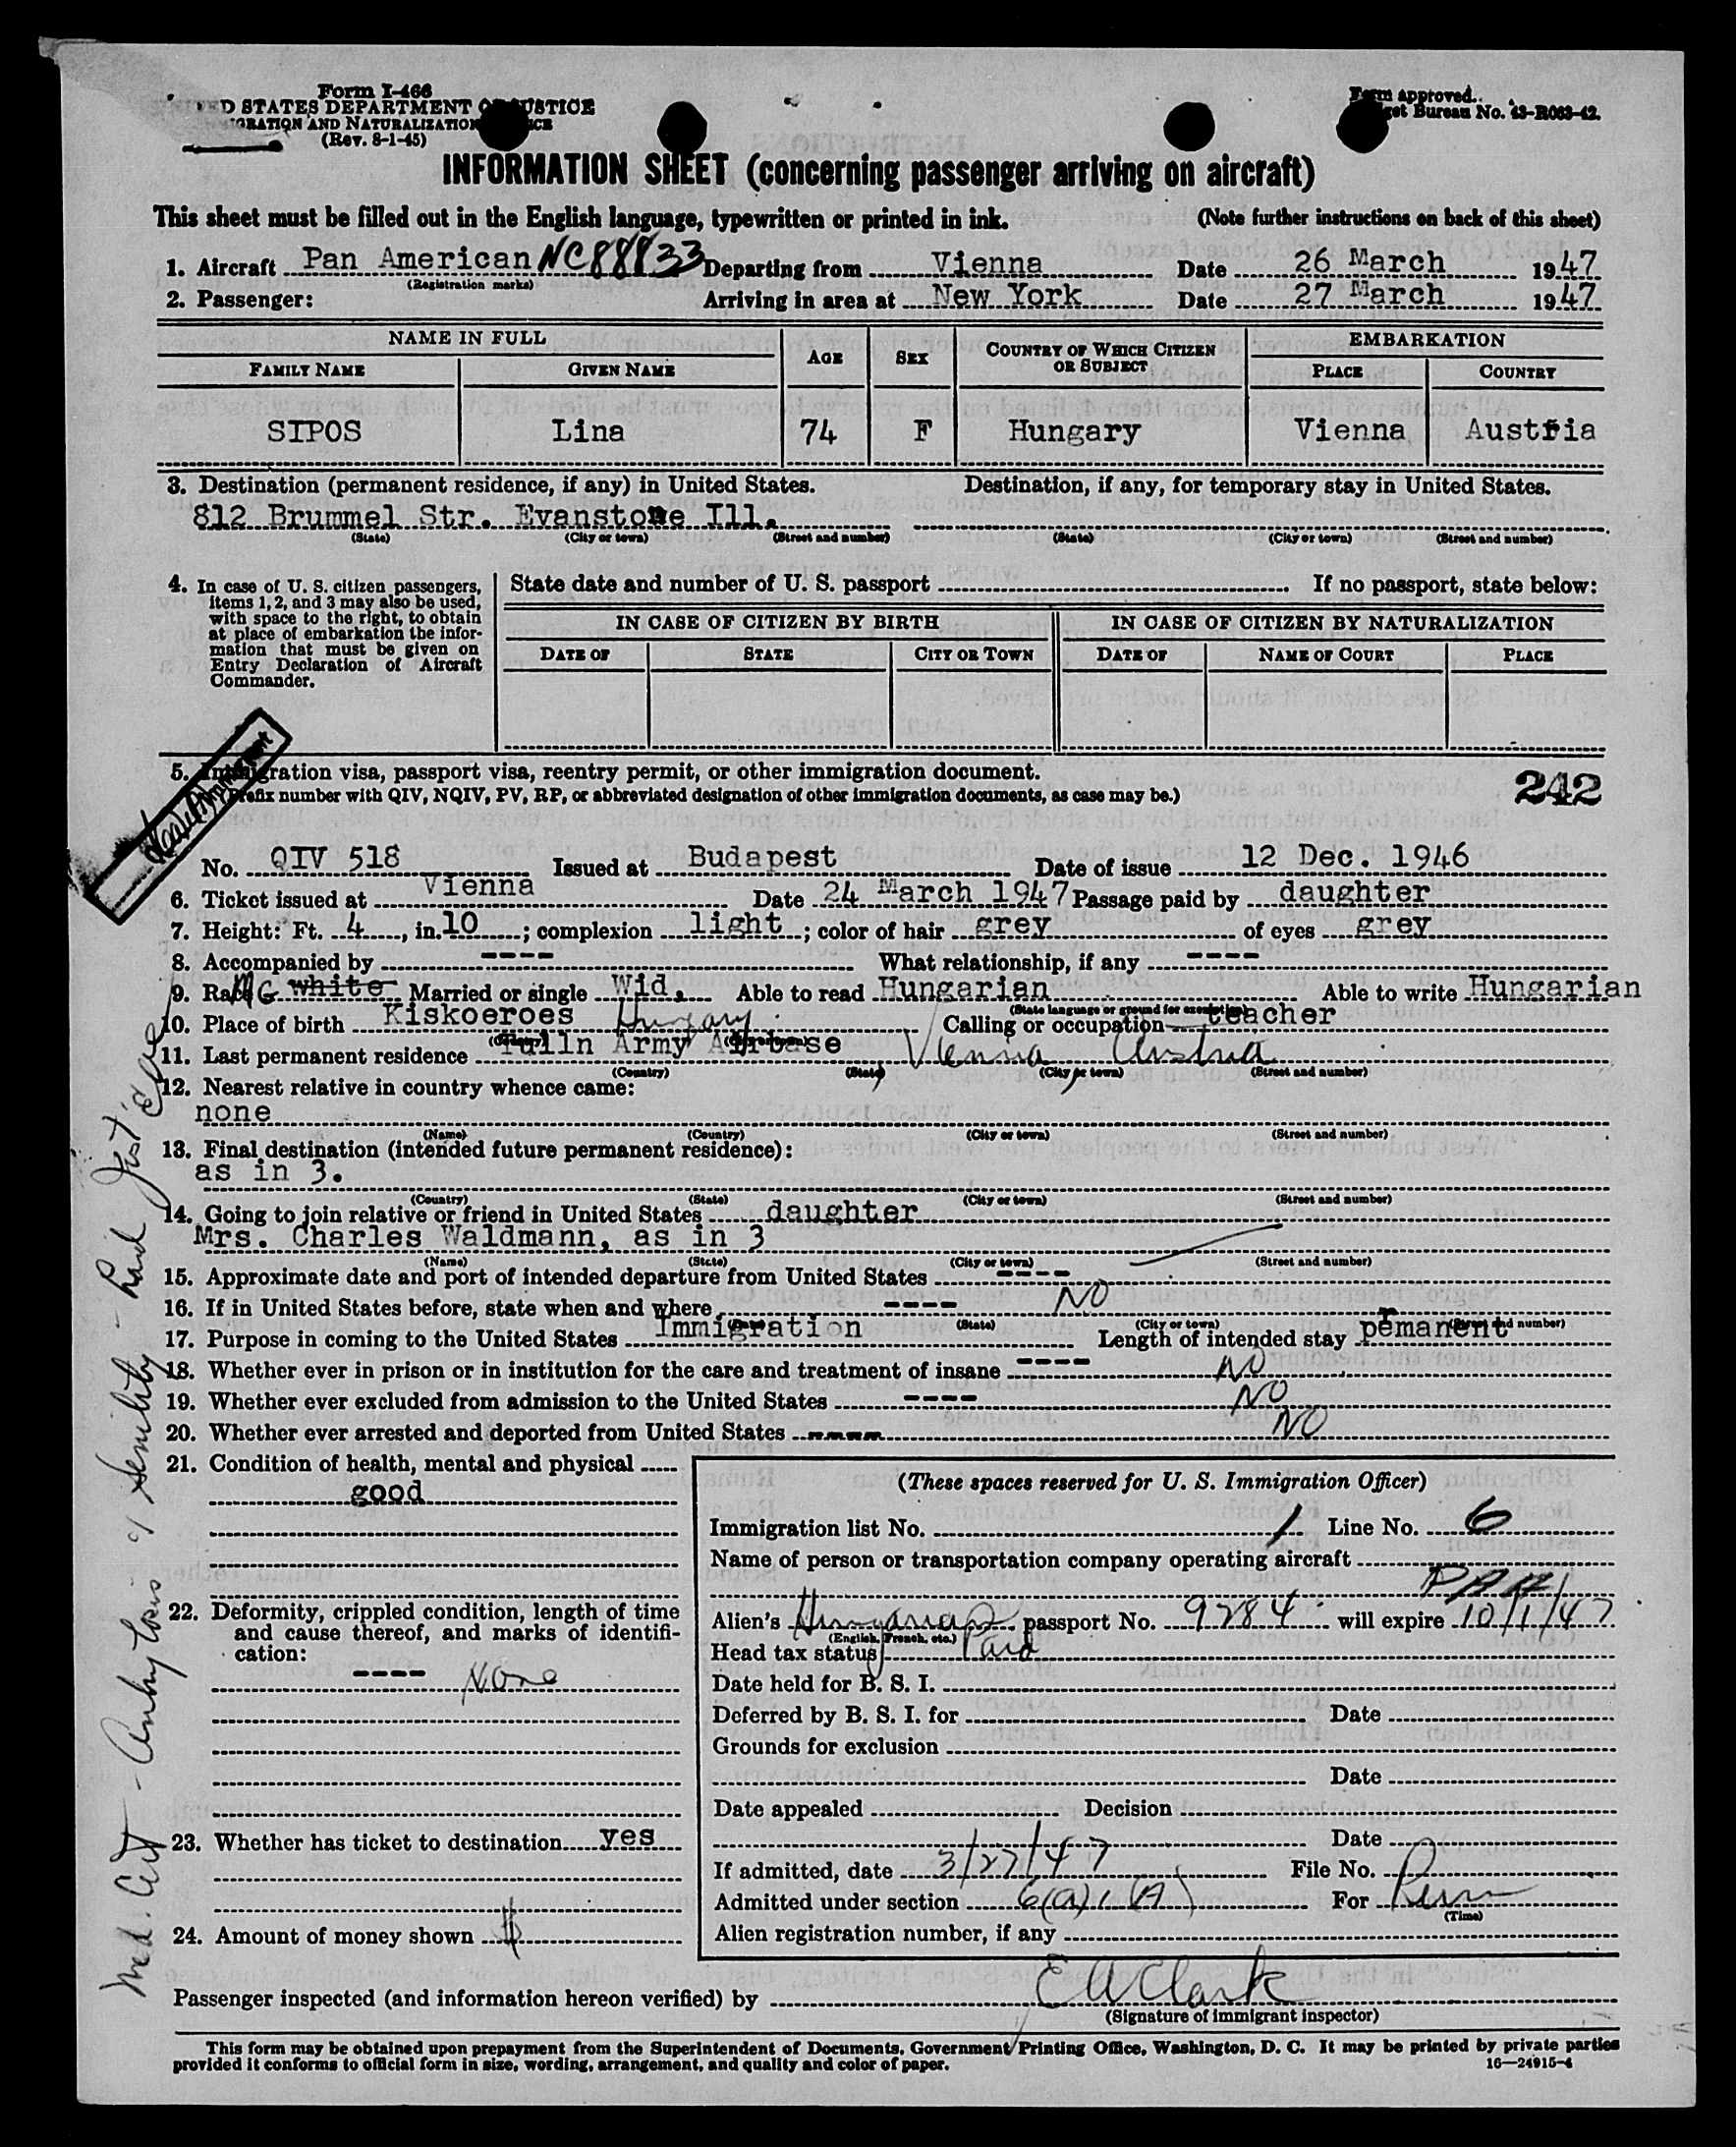 Form I-466
D STATES DEPARTMENT OF JUSTICE
GRATION AND NATURALIZATION
(Rev. 8-1-45)
Form approved.
get Bureau No. 43-R063-42.
INFORMATION SHEET (concerning passenger arriving on aircraft)
This sheet must be filled out in the English language, typewritten or printed in ink. (Note further instructions on back of this sheet)
1. Aircraft Pan American NC88833 Departing from Vienna Date 26 March 1947
(Registration marks)
2. Passenger: Arriving in area at New York Date 27 March 1947
NAME IN FULL AGE SEX COUNTRY OF WHICH CITIZEN OR SUBJECT EMBARKATION
FAMILY NAME GIVEN NAME PLACE COUNTRY
SIPOS Lina 74 F Hungary Vienna Austria
3. Destination (permanent residence, if any) in United States. Destination, if any, for temporary stay in United States.
812 Brummel Str. Evanstone Ill.
(State) (City or town) (Street and number) (State) (City or town) (Street and number)
4. In case of U. S. citizen passengers, items 1, 2, and 3 may also be used, with space to the right, to obtain at place of embarkation the information that must be given on Entry Declaration of Aircraft Commander.
State date and number of U. S. passport If no passport, state below:
IN CASE OF CITIZEN BY BIRTH IN CASE OF CITIZEN BY NATURALIZATION
DATE OF STATE CITY OR TOWN DATE OF NAME OF COURT PLACE
5. Immigration visa, passport visa, reentry permit, or other immigration document.
(Prefix number with QIV, NQIV, PV, RP, or abbreviated designation of other immigration documents, as case may be.)
242
No. QIV 518 Issued at Budapest Date of issue 12 Dec. 1946
6. Ticket issued at Vienna Date 24 March 1947 Passage paid by daughter
7. Height: Ft. 4, in. 10; complexion light; color of hair grey of eyes grey
8. Accompanied by ---- What relationship, if any ----
9. Race MG white Married or single Wid. Able to read Hungarian Able to write Hungarian
(State language or ground for exemption)
10. Place of birth Kiskoeroes Hungary Calling or occupation teacher
11. Last permanent residence Tulln Army Airbase Vienna, Austria
(Country) (State) (City or town) (Street and number)
12. Nearest relative in country whence came:
none
(Name) (Country) (City or town) (Street and number)
13. Final destination (intended future permanent residence):
as in 3.
(Country) (State) (City or town) (Street and number)
14. Going to join relative or friend in United States daughter
Mrs. Charles Waldmann, as in 3
(Name) (State) (City or town) (Street and number)
15. Approximate date and port of intended departure from United States ----
16. If in United States before, state when and where ---- NO
(State) (City or town) (Street and number)
17. Purpose in coming to the United States Immigration Length of intended stay pemanent
r
18. Whether ever in prison or in institution for the care and treatment of insane ---- NO
19. Whether ever excluded from admission to the United States ---- NO
20. Whether ever arrested and deported from United States ---- NO
21. Condition of health, mental and physical
good
22. Deformity, crippled condition, length of time and cause thereof, and marks of identification:
---- None
23. Whether has ticket to destination yes
24. Amount of money shown $
(These spaces reserved for U. S. Immigration Officer)
Immigration list No. 1 Line No. 6
Name of person or transportation company operating aircraft
PAA
Alien's Hungarian passport No. 9284 will expire 10/1/47
(English, French, etc.)
Head tax status Paid
Date held for B. S. I.
Deferred by B. S. I. for Date
Grounds for exclusion
Date
Date appealed Decision
Date
If admitted, date 3/27/47 File No.
Admitted under section 6(a)1(A) For Perm
(Time)
Alien registration number, if any
Passenger inspected (and information hereon verified) by E A Clark
(Signature of immigrant inspector)
This form may be obtained upon prepayment from the Superintendent of Documents, Government Printing Office, Washington, D. C. It may be printed by private parties
provided it conforms to official form in size, wording, arrangement, and quality and color of paper. 16—24915-4
Med. Cert - of senility